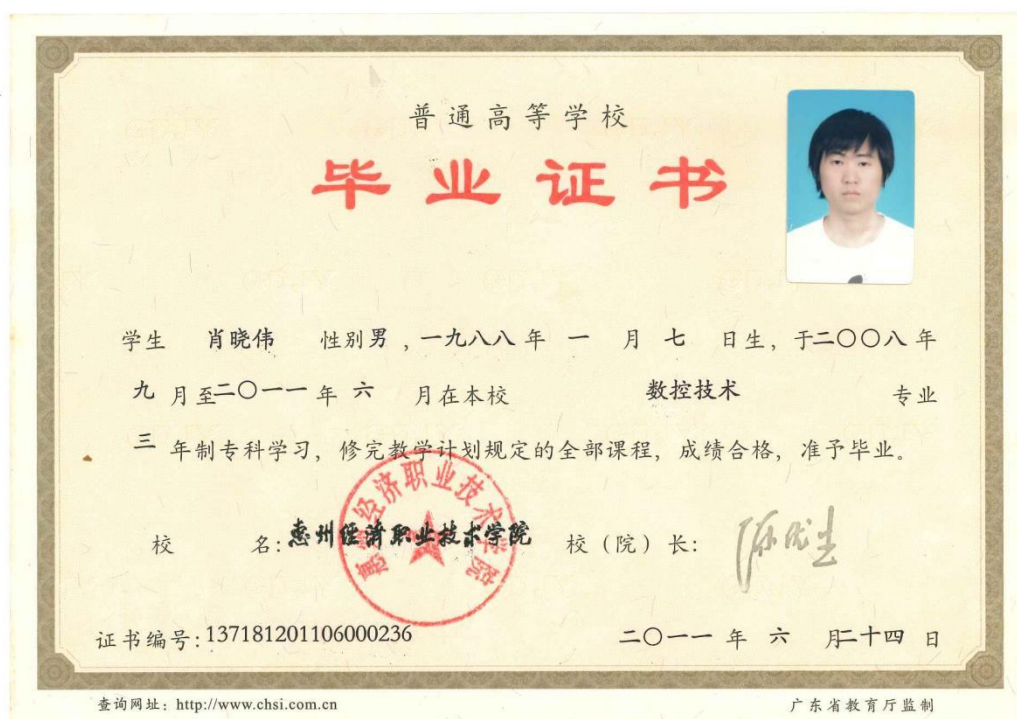 普通高等学校
毕业证书
学生 肖晓伟 性别 男 , 一九八八 年 一 月 七 日生, 于二〇〇八 年
九 月至二〇一一 年 六 月在本校 数控技术 专业
三 年制专科学习, 修完教学计划规定的全部课程, 成绩合格, 准予毕业。
惠州经济职业技术学院
校 名: 惠州经济职业技术学院 校(院)长:
证书编号: 137181201106000236 二〇一一 年 六 月二十四 日
查询网址: http://www.chsi.com.cn 广东省教育厅监制